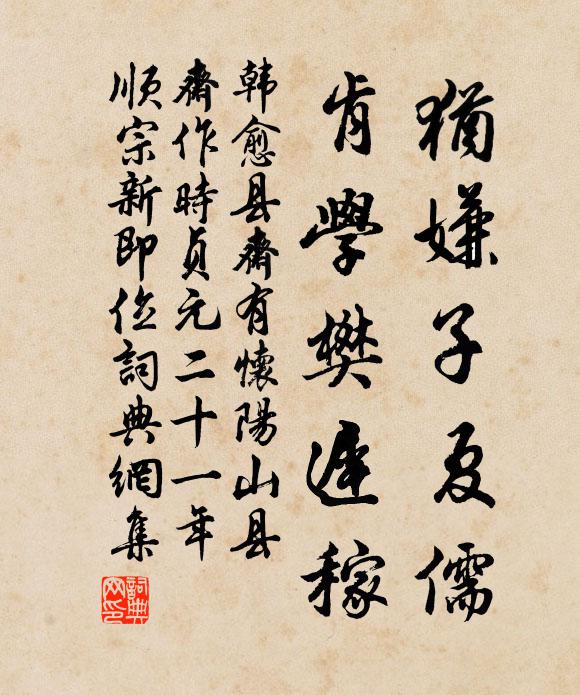 猶嫌子夏儒
肯學樊遲稼
韩愈县齋有懷陽山县
齋作時貞元二十一年
順宗新即位詞典網集
詞典网印